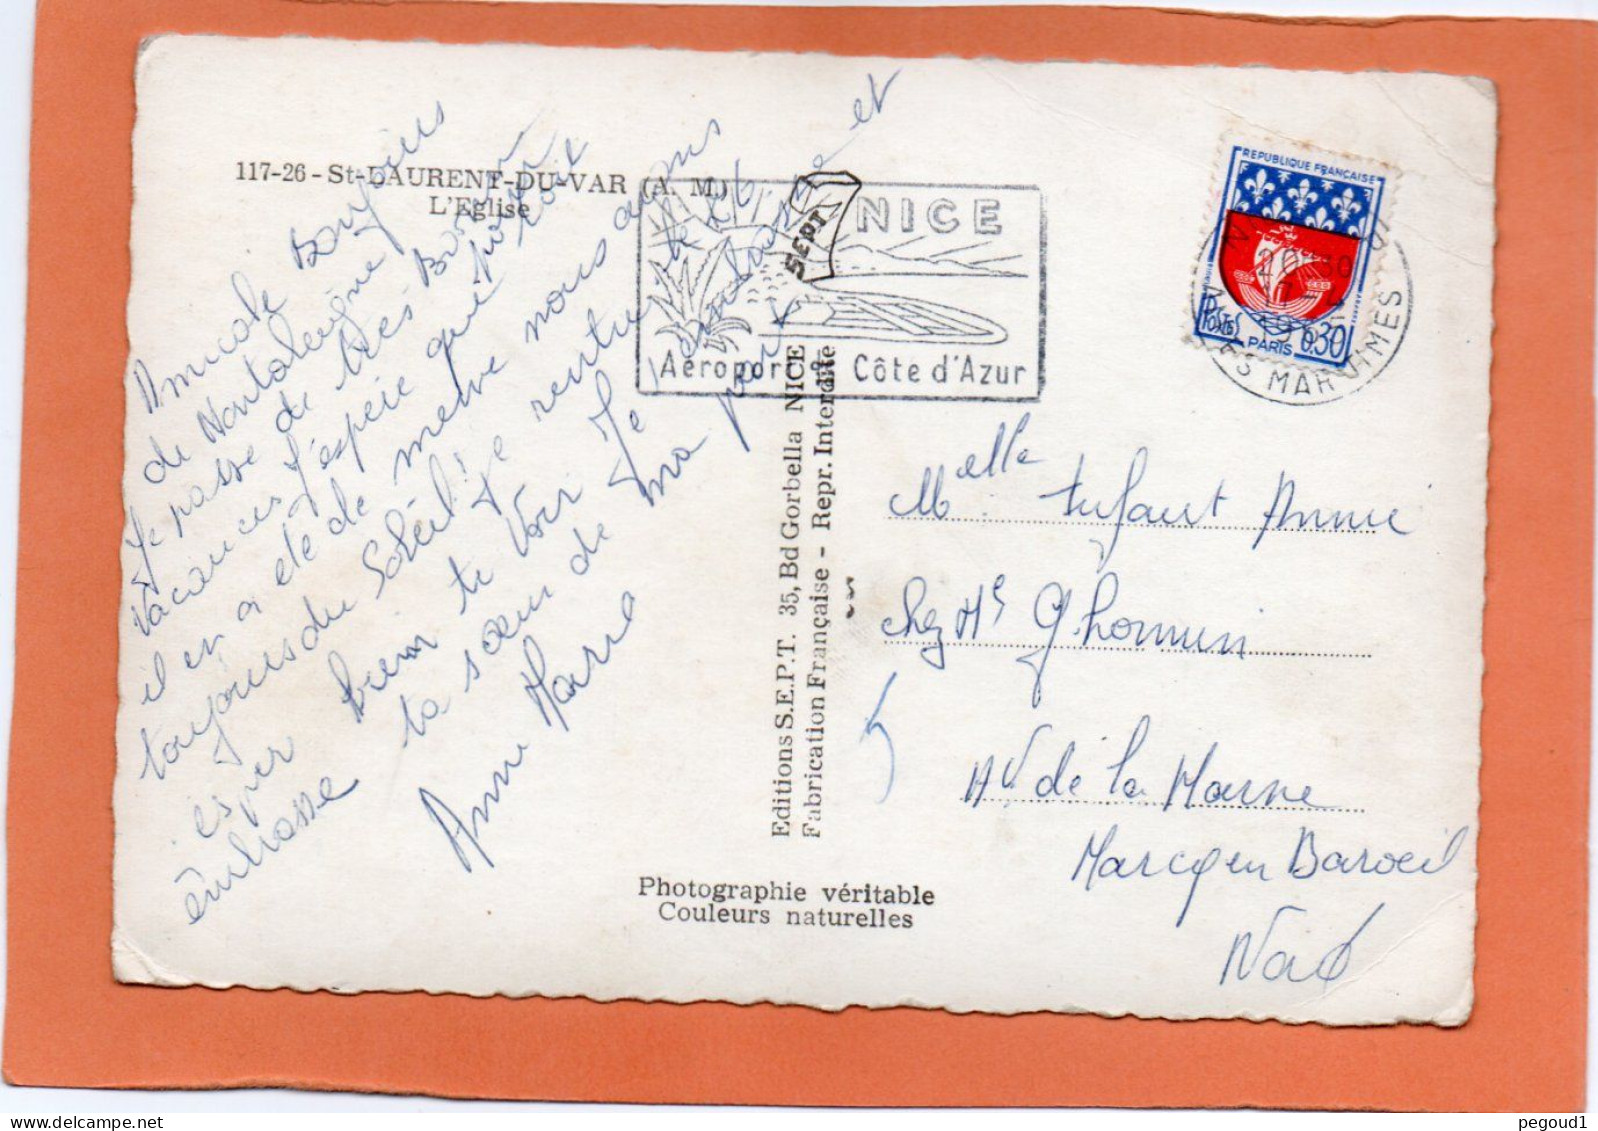 117-26 - St-LAURENT-DU-VAR (A. M.)
L'Eglise
Amicale Bonjours
de
Je passe de très Bonnes
vacances j'espère que pour toi
il en a été de même nous avons
toujours du Soleil! Je rentre le 26
espère bien te Voir Je t'embrasse et
embrasse ta sœur de ma part
Anne Marie
NICE
SEPT
Aéroport Côte d'Azur
Editions S.E.P.T. 35, Bd Gorbella NICE
Fabrication Française - Repr. Interdite
Photographie véritable
Couleurs naturelles
REPUBLIQUE FRANÇAISE
POSTES
0,30
PARIS
MARITIMES
Melle Annie
chez Mr
Av de la Marne
Marcq en Baroeil
Nord
pegoud1